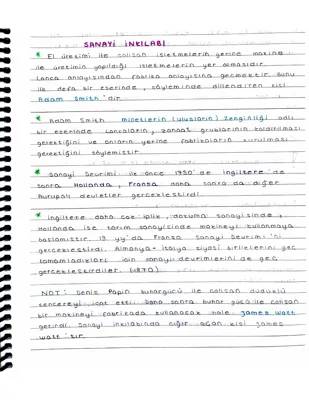 SANAYİ İNKILABI
* El üretimi ile çalışan işletmelerin yerine makina
ile üretimin yapıldığı işletmelerin yer almasıdır.
Lonca anlayışından fabrika anlayışına geçmektir. Bunu
ilk defa bir eserinde, söyleminde dillendiren kişi
Adam Smith'dir.
* Adam Smith Milletlerin (Ulusların) Zenginliği adlı
bir eserinde loncaların, zanaat gruplarının kaldırılması
gerektiğini ve onların yerine fabrikaların kurulması
gerektiğini söylemiştir.
* Sanayi Devrimi ilk önce 1750'de İngiltere'de
sonra Hollanda, Fransa daha sonra da diğer
Avrupalı devletler gerçekleştirdi.
* İngiltere daha çok iplik, dokuma sanayisinde,
Hollanda ise tarım sanayisinde makineyi kullanmaya
başlamıştır. 19.yy'da Fransa Sanayi Devrimi'ni
gerçekleştirdi. Almanya - İtalya siyasi birliklerini geç
tamamladıkları için sanayi devrimlerini de geç
gerçekleştirdiler. (1870)
NOT: Denis Papin buhar gücü ile çalışan düdüklü
tencereyi icat etti. Daha sonra buhar gücü ile çalışan
bir makineyi fabrikada kullanacak hale James Watt
getirdi. Sanayi inkılabında çığır açan kişi James
Watt'tır.